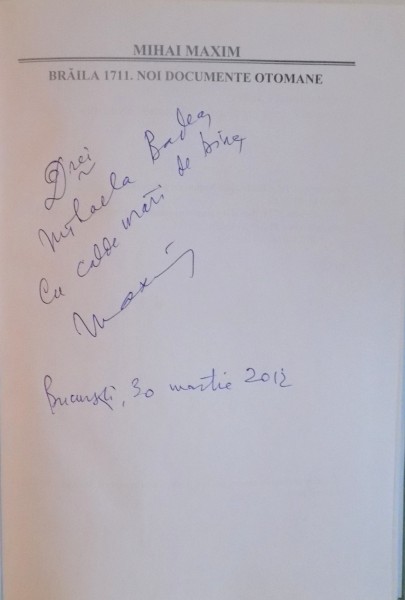 MIHAI MAXIM
BRĂILA 1711. NOI DOCUMENTE OTOMANE
Drei
Mihaela Badea,
Cu calde urări de bine,
Maxim
București, 30 martie 2012